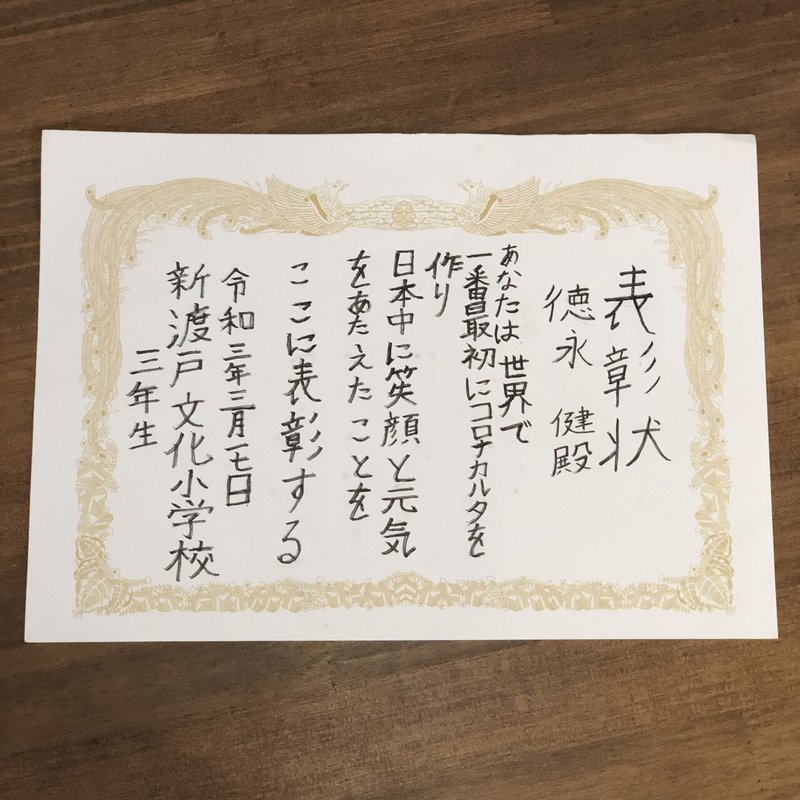 表彰状
徳永 健殿
あなたは世界で
一番最初にコロナカルタを
作り
日本中に笑顔と元気
をあたえたことを
ここに表彰する
令和三年三月一七日
新渡戸文化小学校
三年生